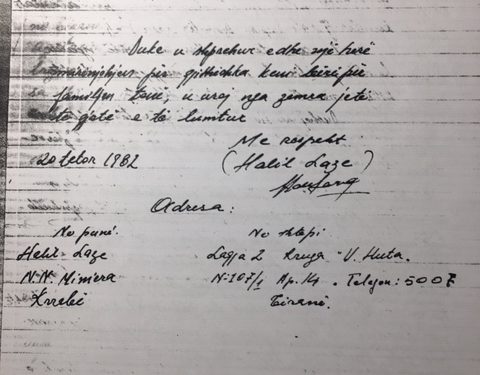 Duke u shprehur edhe një herë
mirënjohjen për gjithshka keni bërë për
familjen tonë, u uroj nga zemra jetë
të gjatë e të lumtur
Me respekt
20 tetor 1982 (Halil Laze)
Adresa:
Ne punë. Ne shtëpi
Halil Laze Lagja 2 Rruga "V. Huta.
N.N. Miniera N:107/1 Ap. 14. Telefon: 5007
Krrabë Tiranë.